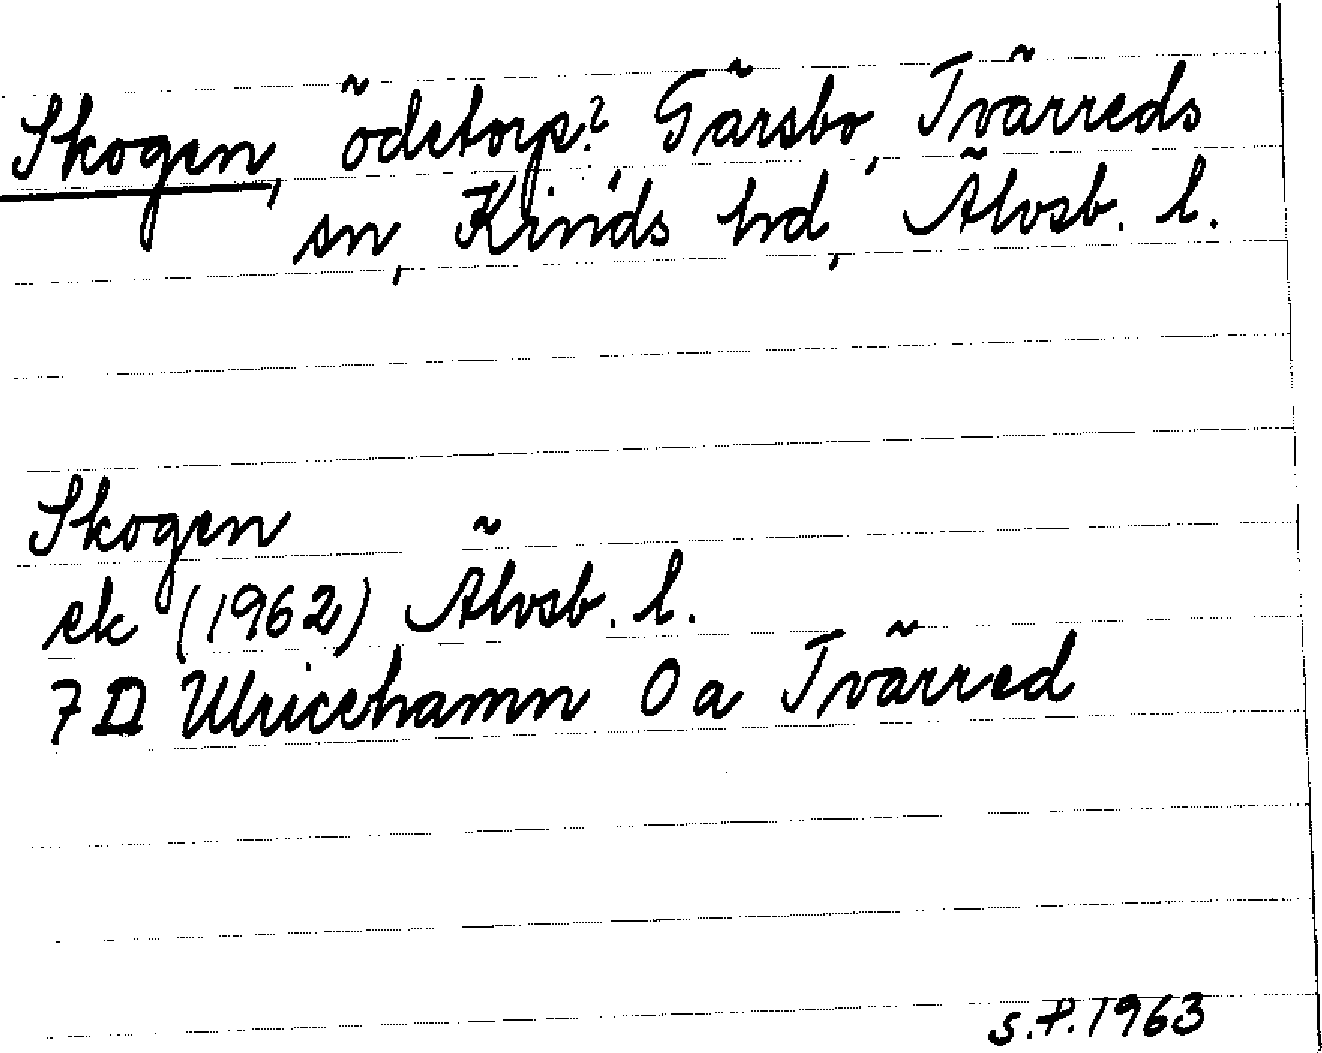 Skogen, ödetorp? Gärsbo, Tvärreds
sn, Kinds hd, Älvsb. l.
Skogen
ek (1962) Älvsb. l.
7 D Ulricehamn 0 a Tvärred
S.P. 1963